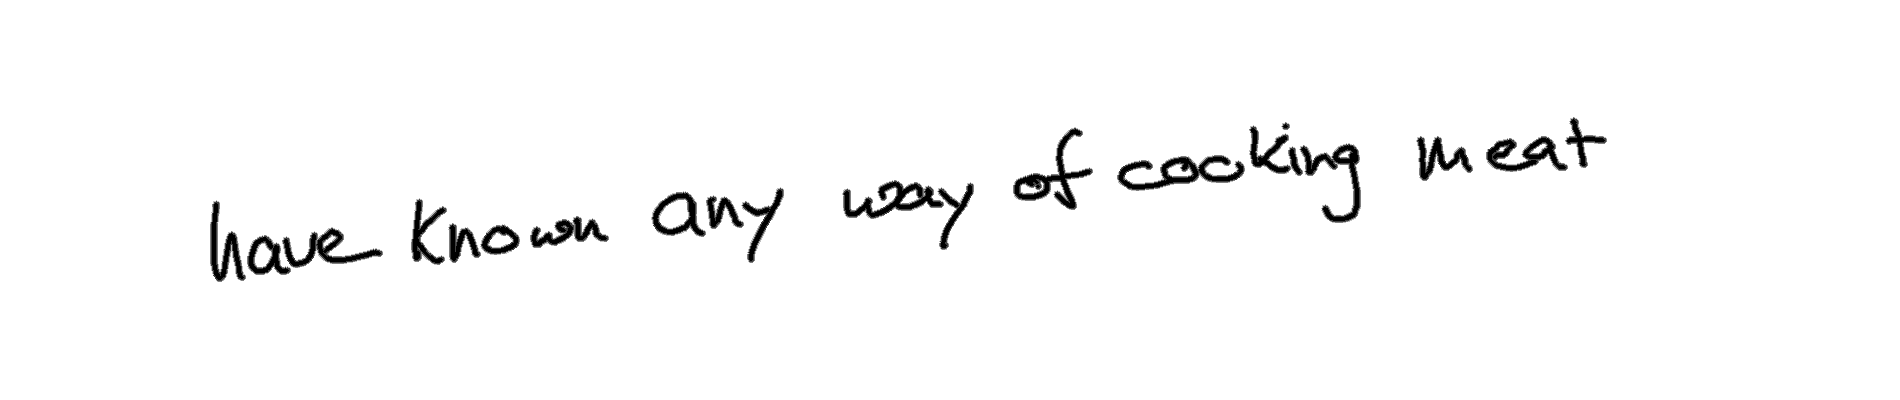 have known any way of cocking meat